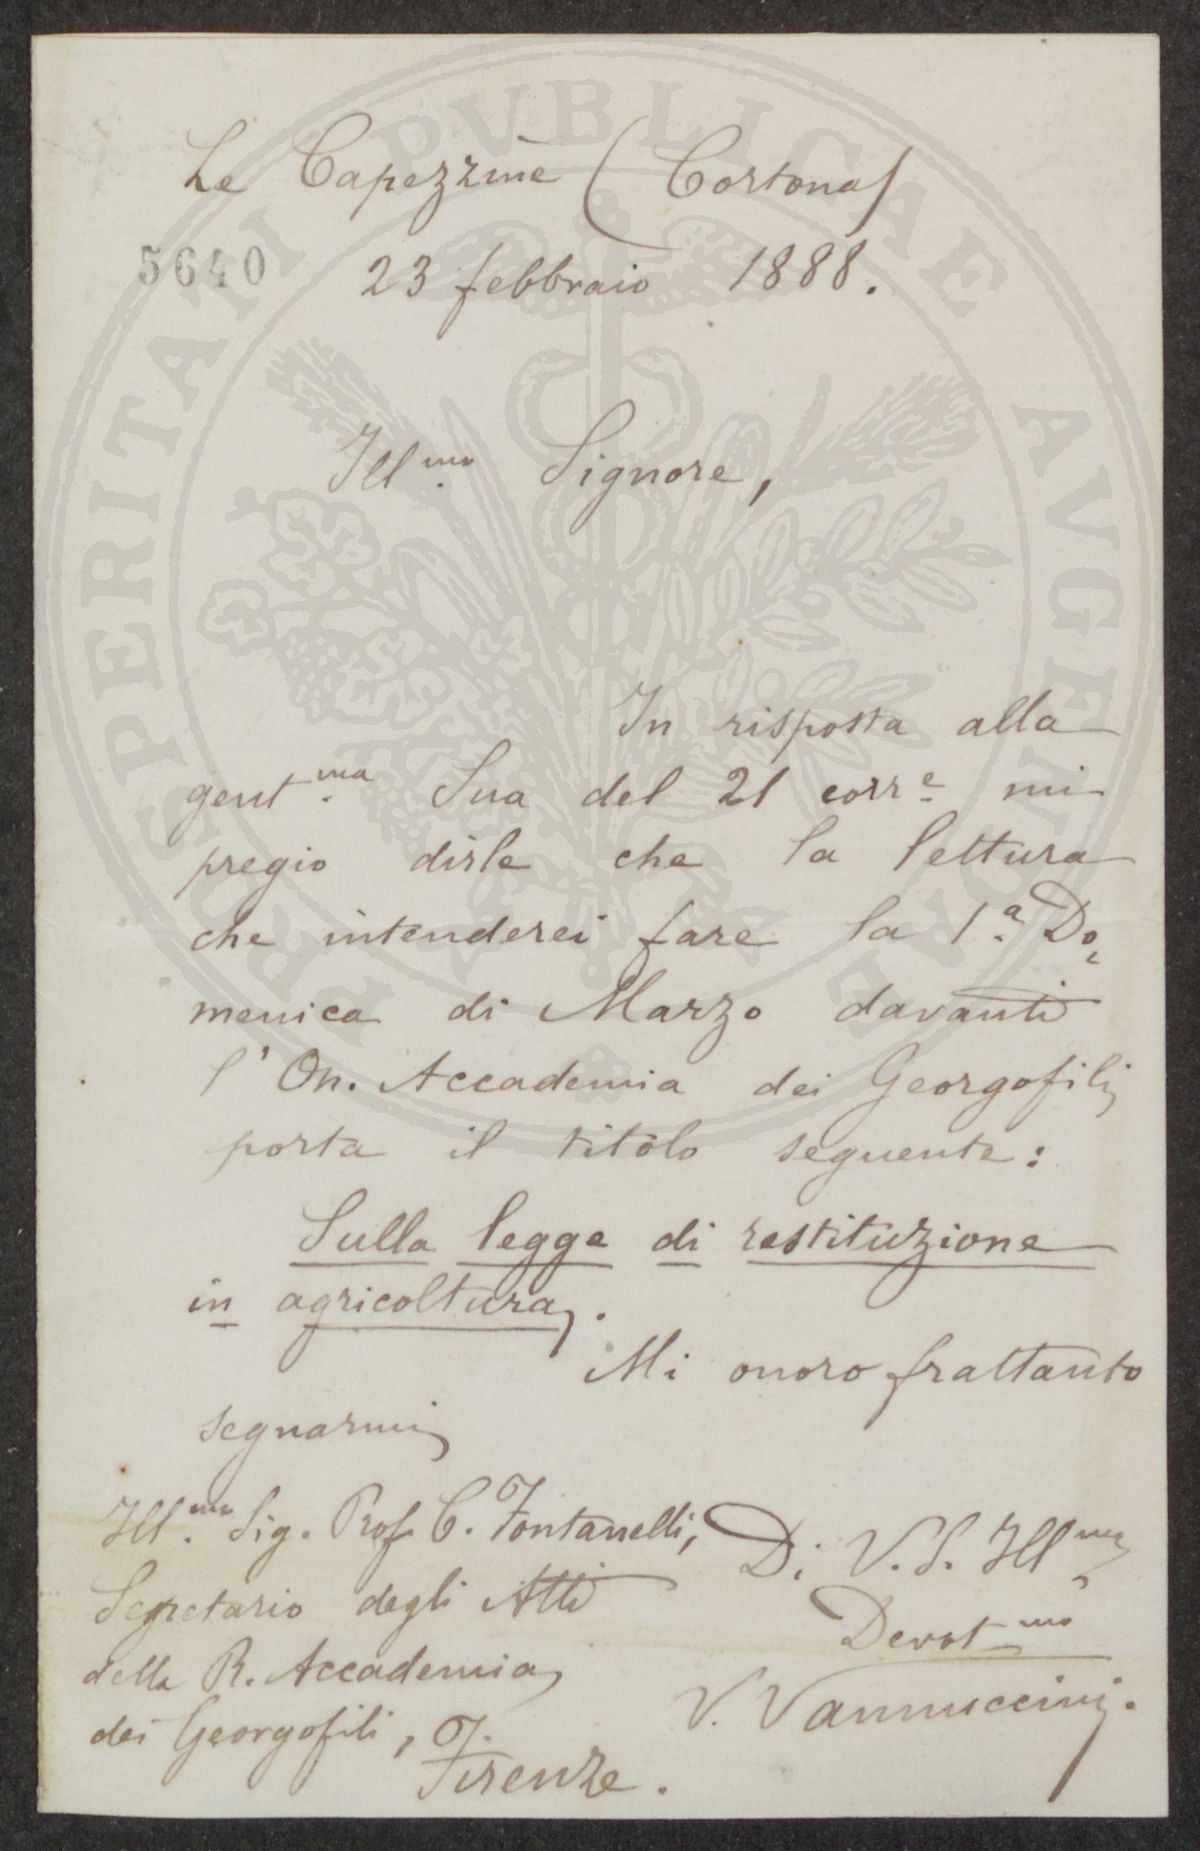 Le Capezzine (Cortona)
5640
23 febbraio 1888.
Ill.mo Signore,
In risposta alla
gent.ma Sua del 21 corr.e mi
pregio dirle che la lettura
che intenderei fare la 1.a Do,
menica di Marzo davanti
l'On. Accademia dei Georgofili
porta il titolo seguente:
Sulla legge di restituzione
in agricoltura.
Mi onoro frattanto
segnarmi
Di V. S. Ill.ma
Devot.mo
V. Vannuccini.
Ill.mo Sig. Prof. C. Fontanelli,
Segretario degli Atti
della R. Accademia
dei Georgofili,
Firenze.
PROSPERITATI PVBLICAE AVGENDAE